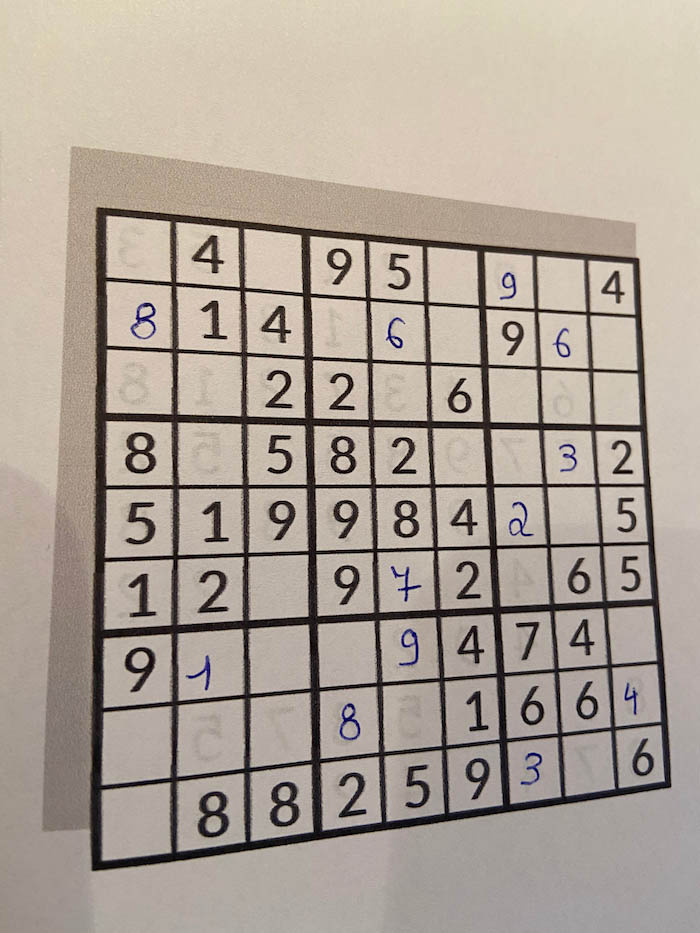 4 9 5 9 4
8 1 4 6 9 6
2 2 6
8 5 8 2 3 2
5 1 9 9 8 4 2 5
1 2 9 7 2 6 5
9 1 9 4 7 4
8 1 6 6 4
8 8 2 5 9 3 6